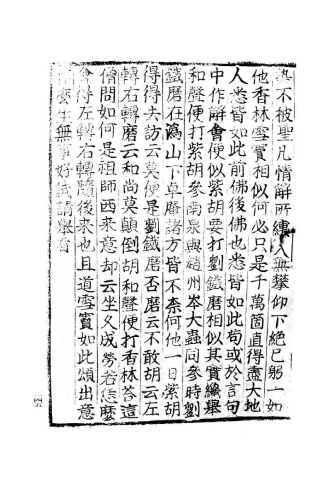 染不被聖凡情解所縛上無攀仰下絕已躬一如
他香林雪竇相似何必只是千萬箇直得盡大地
人悉皆如此前佛後佛也悉皆如此苟或於言句
中作解會便似紫胡要打劉鐵磨相似其實纔舉
和聲便打紫胡參南泉與趙州岑大蟲同參時劉
鐵磨在溈山下卓庵諸方皆不奈何他一日紫胡
得得去訪云莫便是劉鐵磨否磨云不敢胡云左
轉右轉磨云和尚莫顛倒胡和聲便打香林答這
僧問如何是祖師西來意却云坐久成勞若恁麼
會得左轉右轉隨後來也且道雪竇如此頌出意
麼生無事好試請舉看